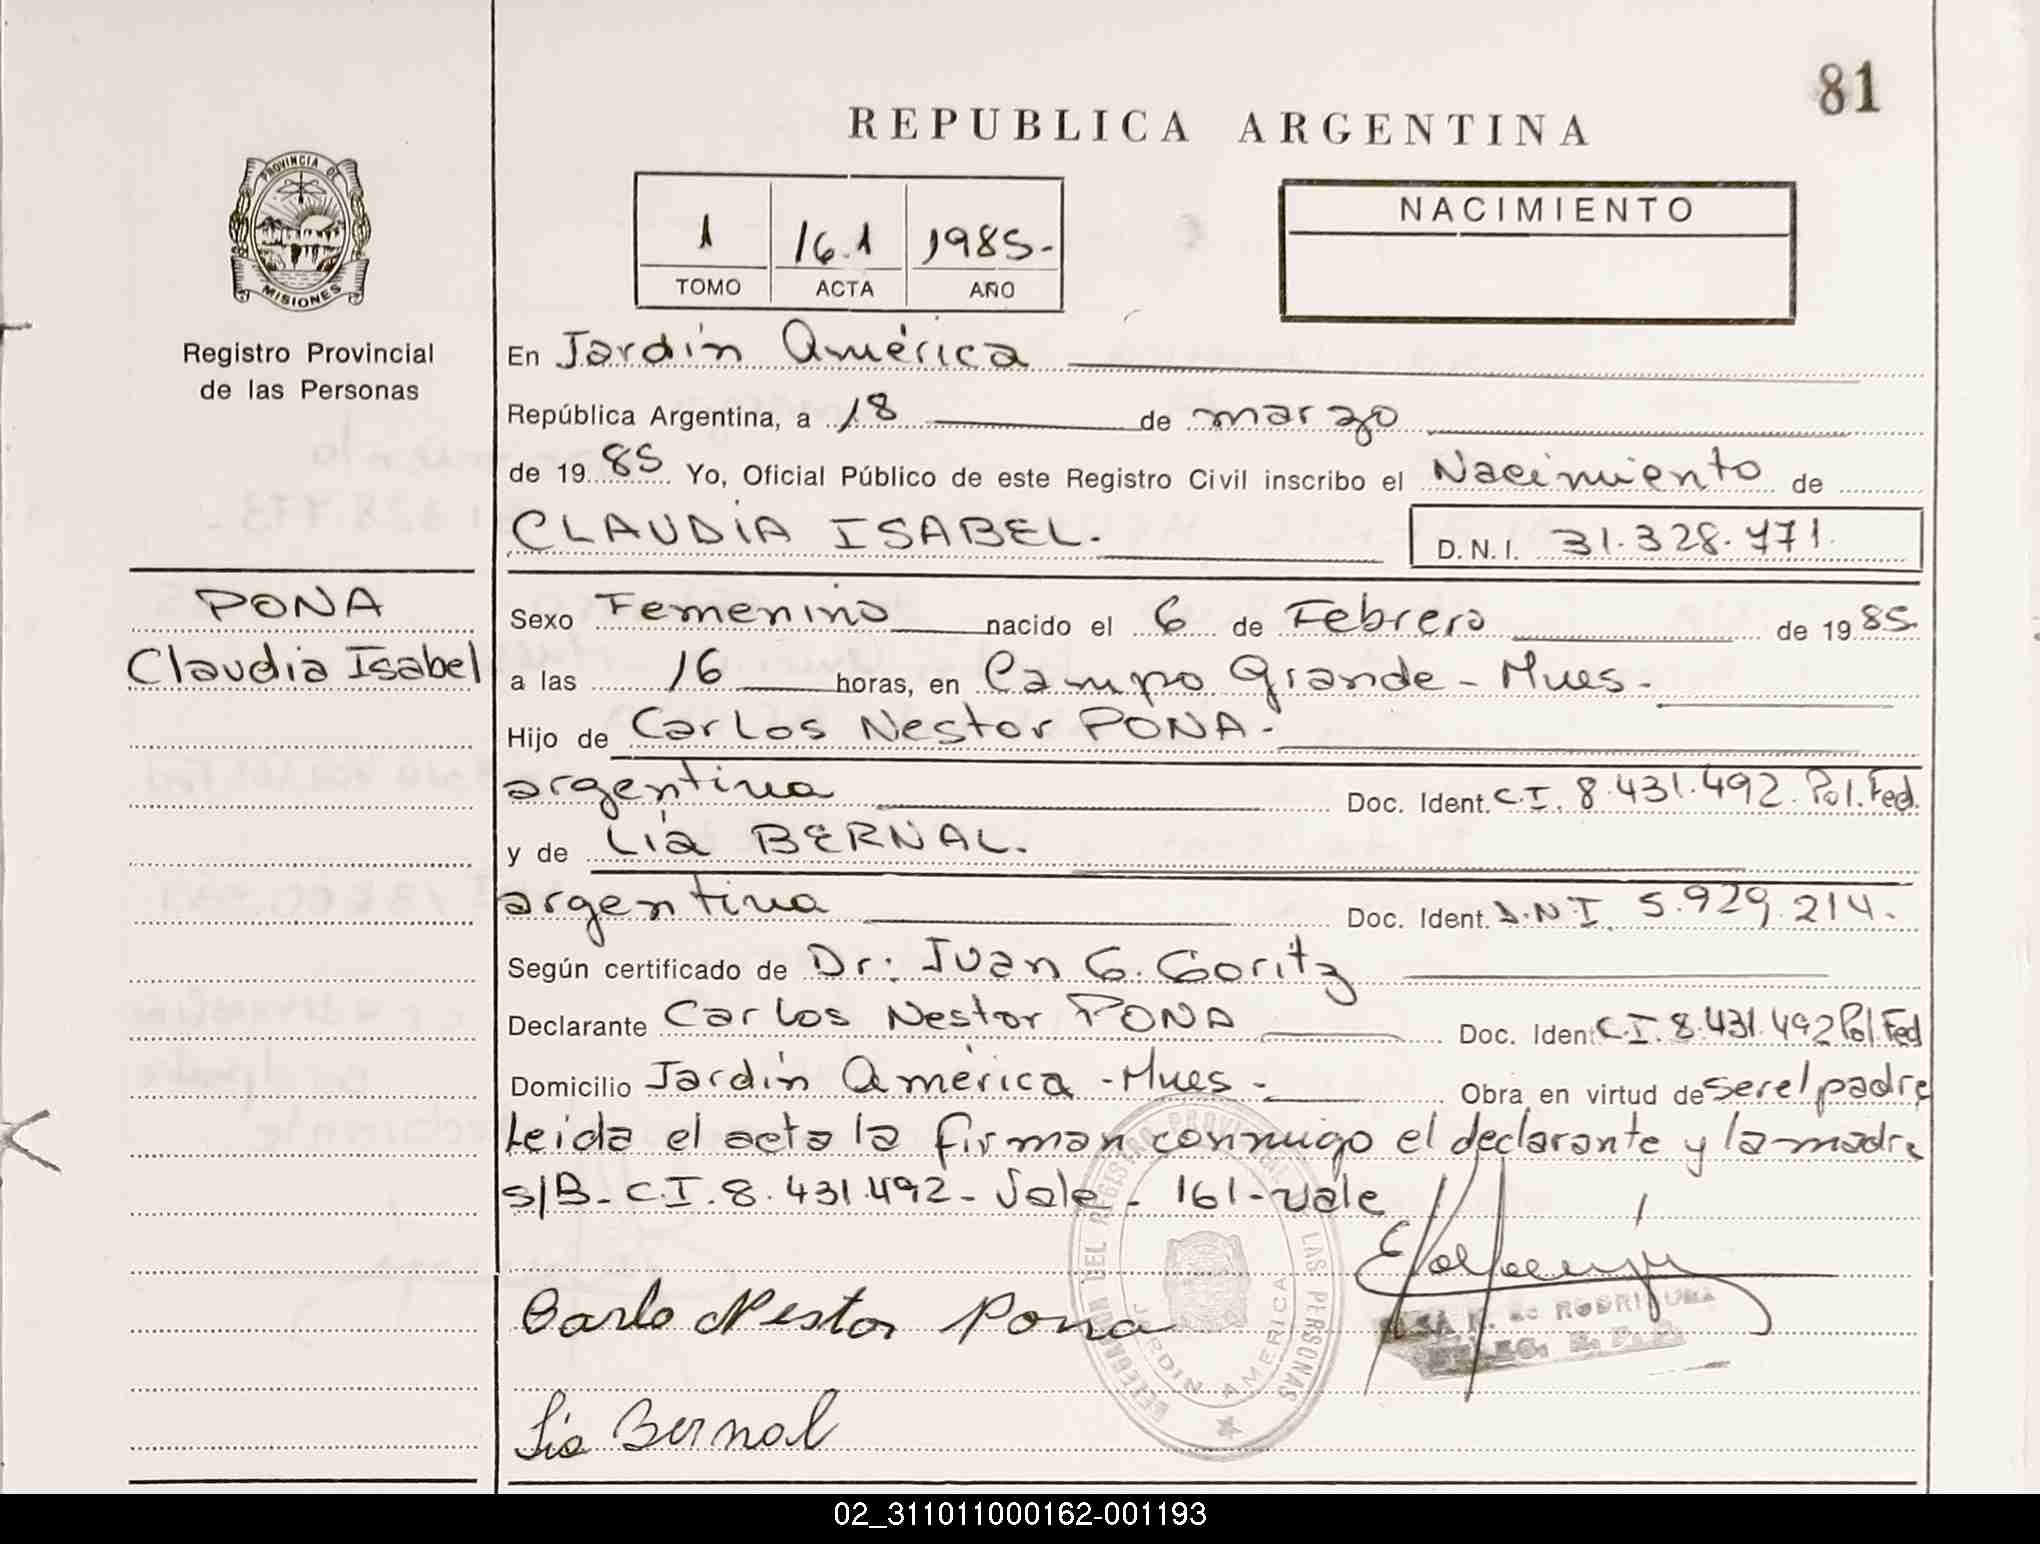 81
REPUBLICA ARGENTINA
PROVINCIA DE
MISIONES
Registro Provincial
de las Personas
1 161 1985.-
TOMO ACTA AÑO
NACIMIENTO
En Jardín América
República Argentina, a 18 de marzo
de 1985 Yo, Oficial Público de este Registro Civil inscribo el Nacimiento de
CLAUDIA ISABEL.
D.N.I. 31.328.771.
PONA
Claudia Isabel
Sexo Femenino nacido el 6 de Febrero de 1985.
a las 16 horas, en Campo Grande - Mnes.
Hijo de Carlos Nestor PONA.-
argentina Doc. Ident. C.I. 8.431.492. Pol. Fed.
y de Lía BERNAL.
argentina Doc. Ident. D.N.I. 5.929.214.
Según certificado de Dr. Juan G. Goritz
Declarante Carlos Nestor PONA Doc. Ident. C.I. 8.431.492 Pol. Fed
Domicilio Jardín América - Mnes - Obra en virtud de ser el padre
Leida el acta la firman conmigo el declarante y la madre
s/B- C.I. 8.431.492 - Vale - 161 - vale
Carlo Nestor Pona
Lia Bernal
DELEGACION DEL REGISTRO PROVINCIAL DE LAS PERSONAS
JARDIN AMERICA
02_311011000162-001193